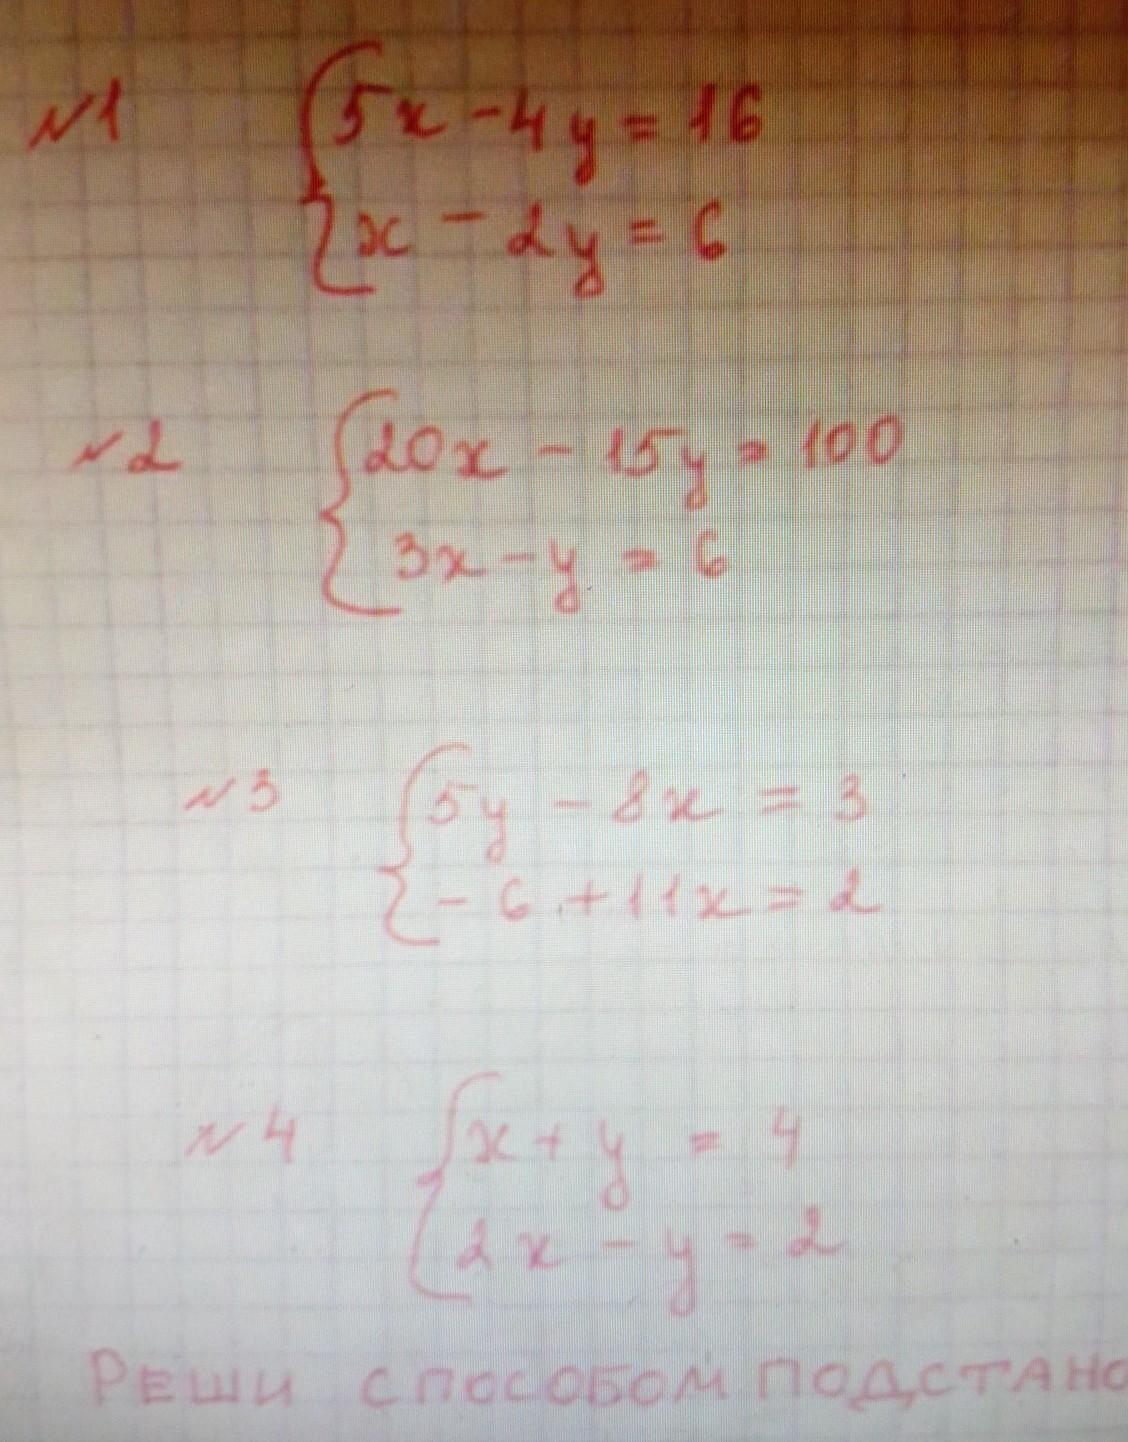 №1 { 5x - 4y = 16
x - 2y = 6
№2 { 20x - 15y = 100
3x - y = 6
№3 { 5y - 8x = 3
- 6 + 11x = 2
№4 { x + y = 4
2x - y = 2
РЕШИ СПОСОБОМ ПОДСТАНО